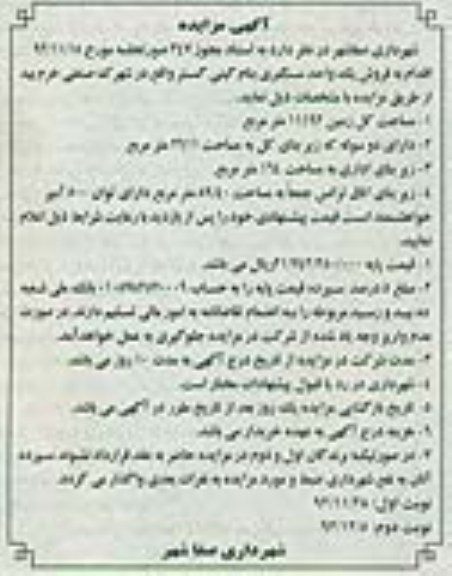 آگهی مزایده
شهرداری صفاشهر در نظر دارد به استناد مجوز ۳۴۷ صورتجلسه مورخ ۹۳/۱۱/۱۵
اقدام به فروش یک واحد مسکونی بنام گیتی گستر واقع در شهرک صنعتی خرم بید
از طریق مزایده با مشخصات ذیل نماید.
۱- مساحت کل زمین ۱۱۱۹۶ متر مربع
۲- دارای دو سوله که زیر بنای کل به مساحت متر مربع
۳- زیر بنای اداری به مساحت ۱۶۸ متر مربع
۴- زیر بنای اتاق ترانس جمعاً به مساحت متر مربع دارای توان ۵۰۰ آمپر
خواهشمند است قیمت پیشنهادی خود را پس از بازدید با رعایت شرایط ذیل اعلام
نمایید.
۱- قیمت پایه ریال می باشد.
۲- مبلغ ۵ درصد سپرده قیمت پایه را به حساب بانک ملی شعبه
ده بید و رسید مربوطه را به انضمام تقاضانامه به امور مالی تسلیم دارند. در صورت
عدم واریز وجه یاد شده از شرکت در مزایده جلوگیری به عمل خواهد آمد.
۳- مدت شرکت در مزایده از تاریخ درج آگهی به مدت ۱۰ روز می باشد.
۴- شهرداری در رد یا قبول پیشنهادات مختار است.
۵- تاریخ بازگشایی مزایده یک روز بعد از تاریخ مقرر در آگهی می باشد.
۶- هزینه درج آگهی به عهده خریدار می باشد.
۷- در صورتیکه برندگان اول و دوم در مزایده حاضر به عقد قرارداد نشوند سپرده
آنان به نفع شهرداری ضبط و مورد مزایده به نفرات بعدی واگذار می گردد.
نوبت اول: ۹۳/۱۱/۲۸
نوبت دوم: ۹۳/۱۲/۵
شهرداری صفا شهر